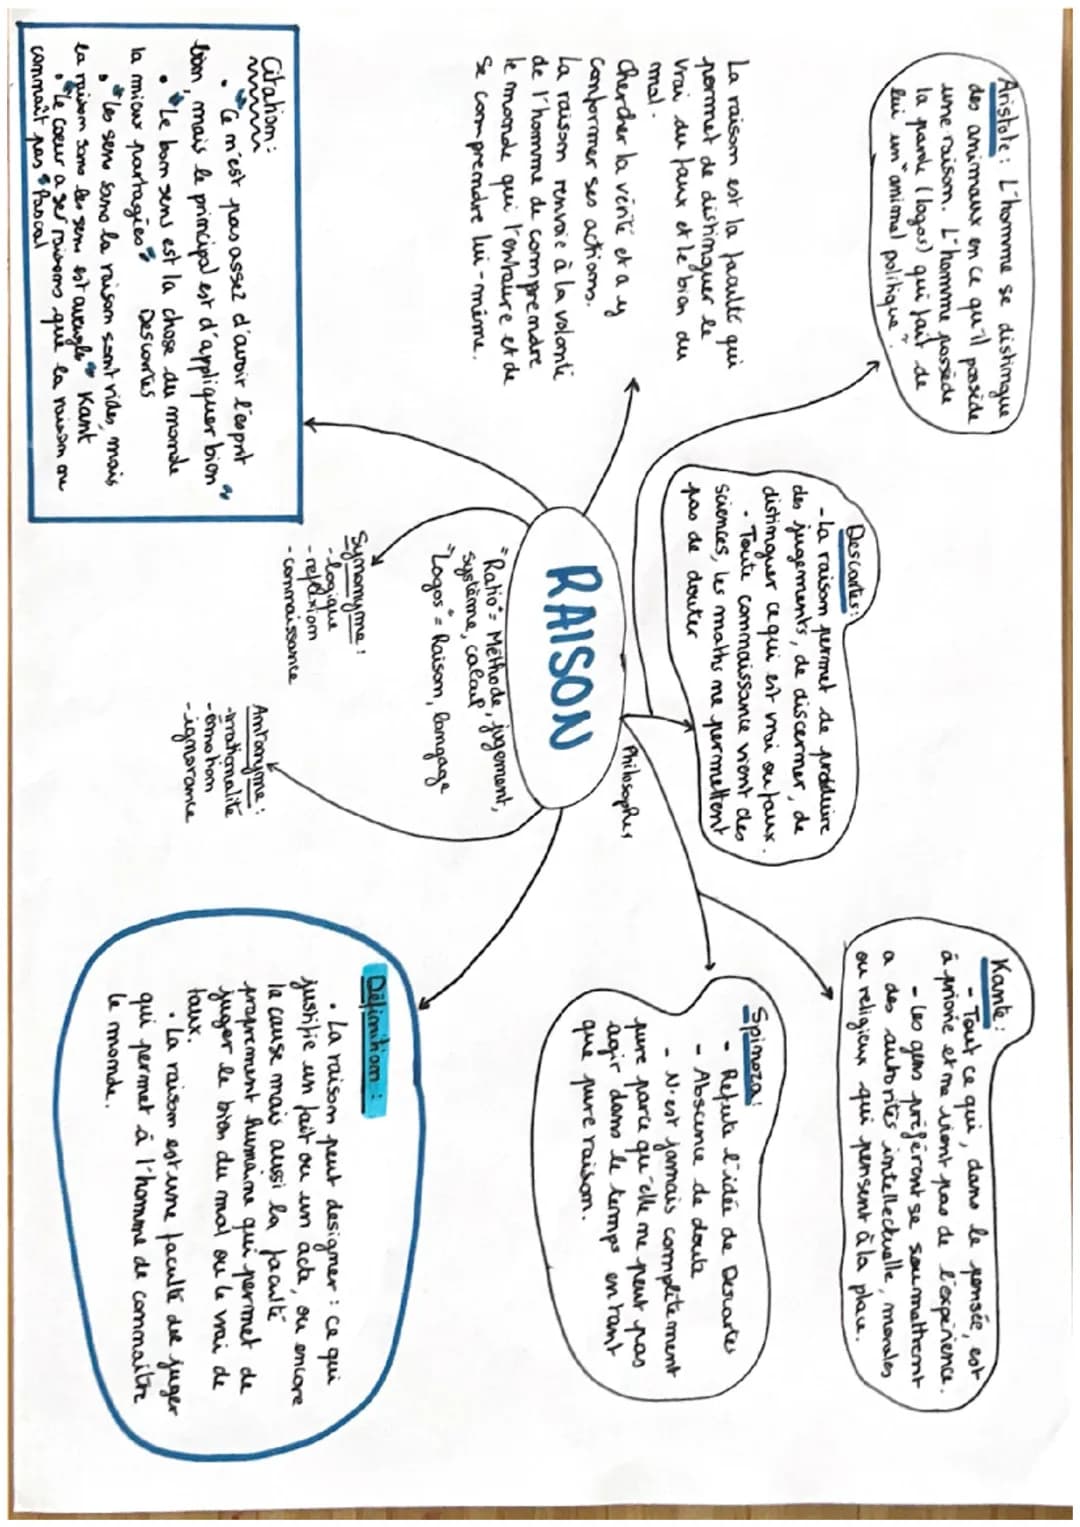 Aristote : L'homme se distingue
des animaux en ce qu'il possède
une raison. L'homme possède
la parole (logos) qui fait de
lui un "animal politique".
La raison est la faculté qui
permet de distinguer le
vrai du faux et le bien du
mal.
Chercher la vérité et a y
conformer ses actions.
La raison renvoie à la volonté
de l'homme de comprendre
le monde qui l'entoure et de
se comprendre lui-même.
Citation :
• "Ce n'est pas assez d'avoir l'esprit
bien, mais le principal est d'appliquer bien"
• "Le bon sens est la chose du monde
la mieux partagées" Descartes
• "Les sens sans la raison sont vides, mais
la raison sans les sens est aveugle" Kant
• "Le coeur a ses raisons que la raison ne
connaît pas" Pascal
Descartes :
- La raison permet de produire
des jugements, de discerner, de
distinguer ce qui est vrai ou faux.
- Toute connaissance vient des
sciences, les maths ne permettent
pas de douter
Philosophes
RAISON
"Ratio" = Méthode, jugement,
système, calcul
"Logos" = Raison, langage
Synonyme :
- logique
- réflexion
- connaissance
Antonyme :
- irrationalité
- émotion
- ignorance
Kante :
- Tout ce qui, dans le pensée, est
à priorie et ne vient pas de l'expérience.
- Les gens préfèrent se soumettrent
a des autorités intellectuelle, morales
ou religieux qui pensent à la place.
Spinoza :
- Refute l'idée de Descartes
- Absence de doute
- N'est jamais complètement
pure parce qu'elle ne peut pas
agir dans le temps en tant
que pure raison.
Définition :
• La raison peut designer : ce qui
justifie un fait ou un acte, ou encore
la cause mais aussi la faculté
proprement humaine qui permet de
juger le bien du mal ou le vrai de
faux.
• La raison est une faculté de juger
qui permet à l'homme de connaître
le monde.